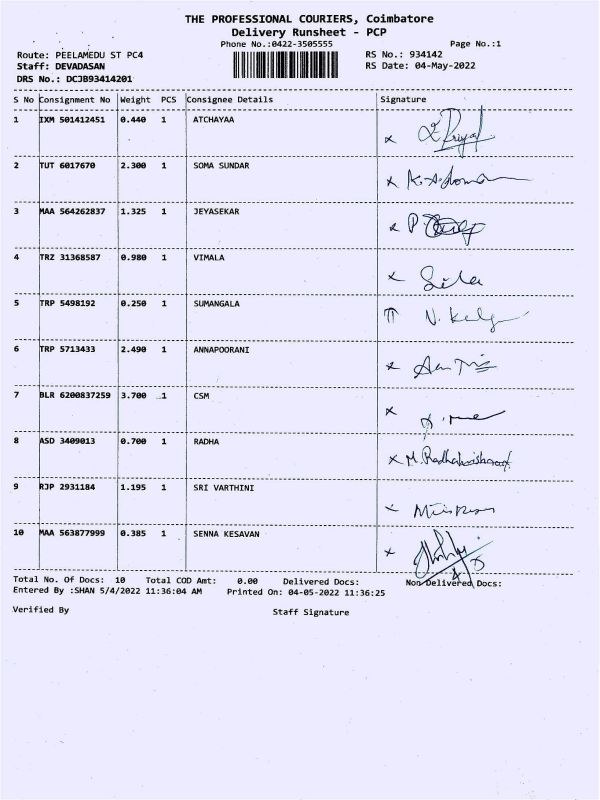 THE PROFESSIONAL COURIERS, Coimbatore
Delivery Runsheet - PCP
Phone No.:0422-3505555 Page No.:1
Route: PEELAMEDU ST PC4 RS No.: 934142
Staff: DEVADASAN RS Date: 04-May-2022
DRS No.: DCJB93414201
S No Consignment No Weight PCS Consignee Details Signature
1 IXM 501412451 0.440 1 ATCHAYAA
2 TUT 6017670 2.300 1 SOMA SUNDAR
3 MAA 564262837 1.325 1 JEYASEKAR
4 TRZ 31368587 0.980 1 VIMALA
5 TRP 5498192 0.250 1 SUMANGALA
6 TRP 5713433 2.490 1 ANNAPOORANI
7 BLR 6200837259 3.700 1 CSM
8 ASD 3409013 0.700 1 RADHA M. Radhakrishnan
9 RJP 2931184 1.195 1 SRI VARTHINI
10 MAA 563877999 0.385 1 SENNA KESAVAN
Total No. Of Docs: 10 Total COD Amt: 0.00 Delivered Docs: Non Delivered Docs:
Entered By :SHAN 5/4/2022 11:36:04 AM Printed On: 04-05-2022 11:36:25
Verified By Staff Signature